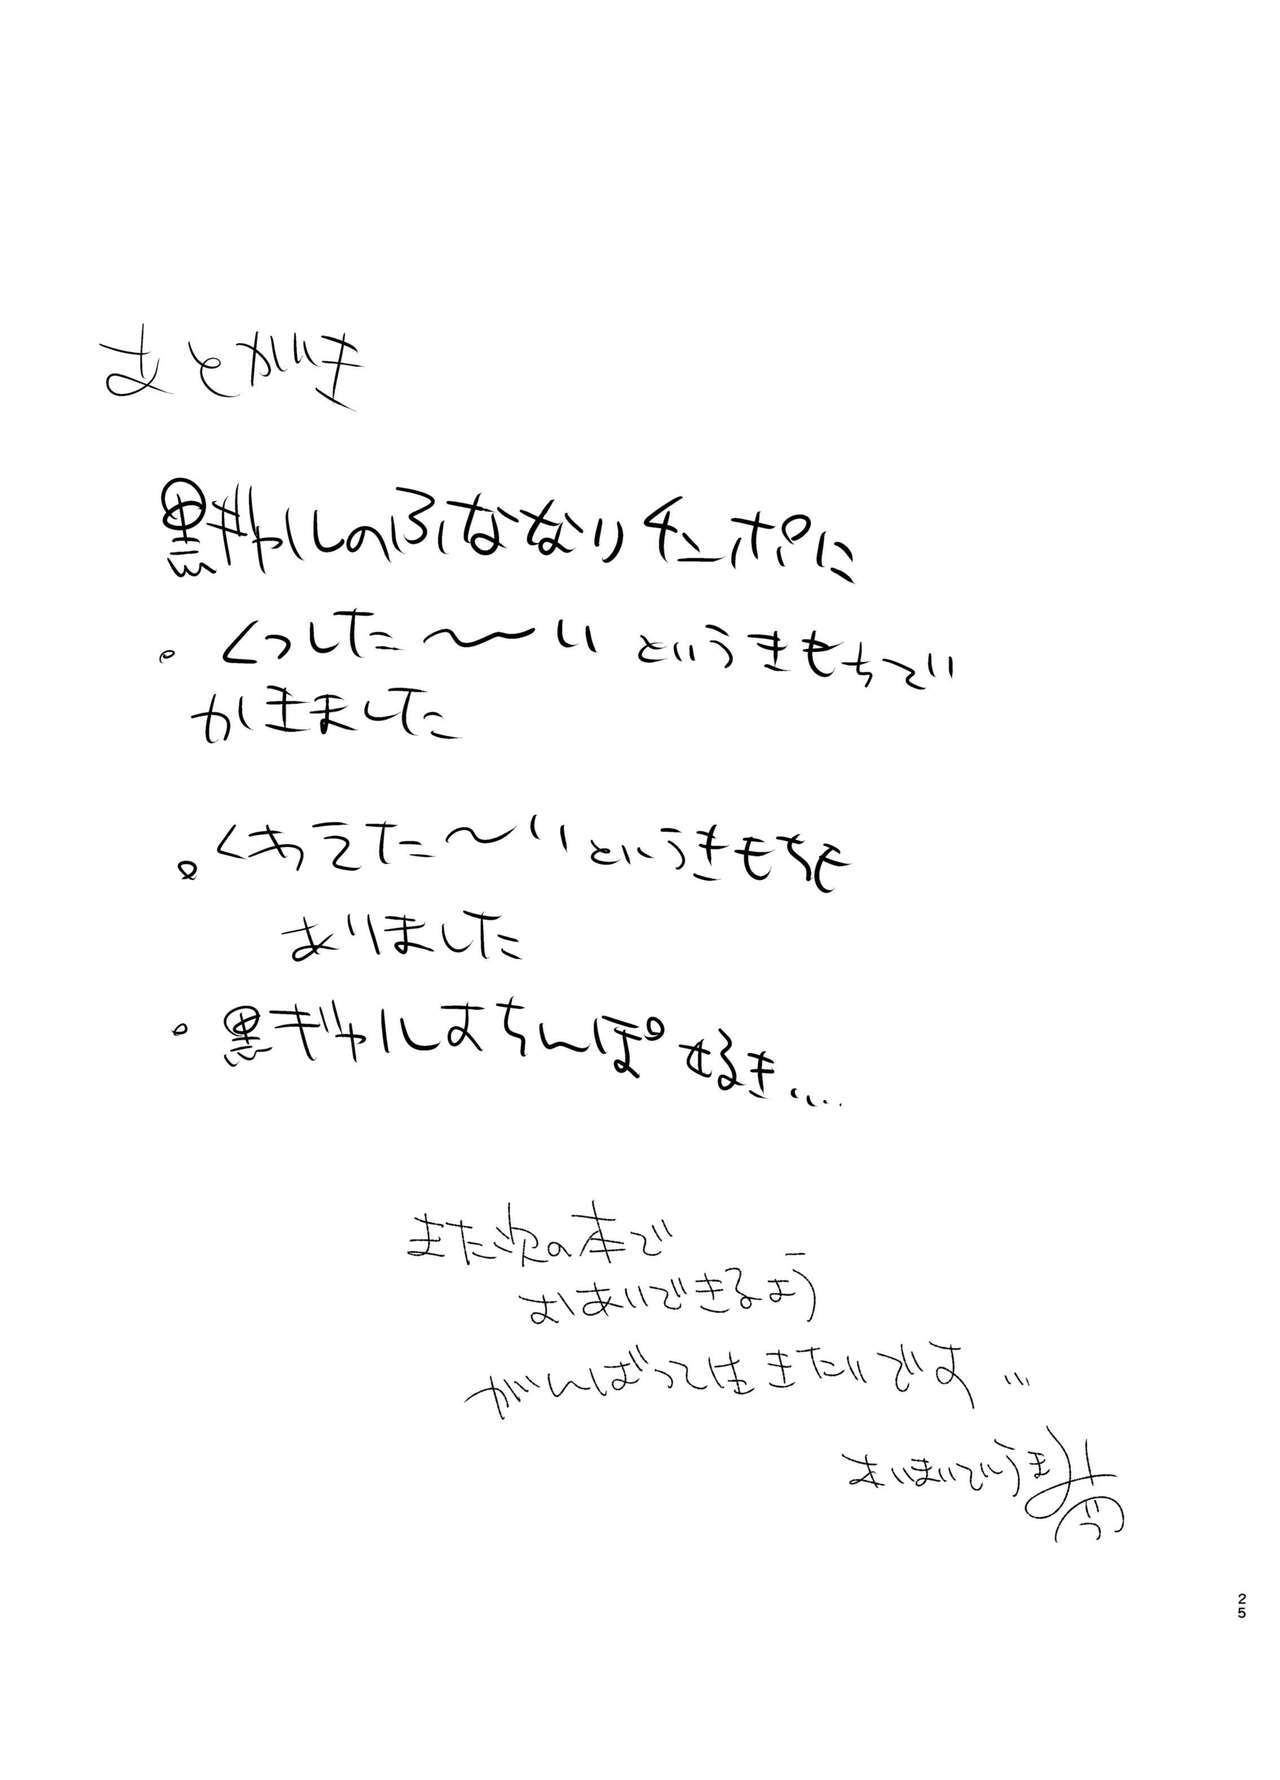 あとがき
黒ギャルのふななりチンポに
・くっした〜〜いというきもちで
かきました
・くわえた〜いというきもちも
ありました
・黒ギャルおちんぽ好き….
また次の本で
おあいできるよう
がんばって生きたいです…
25